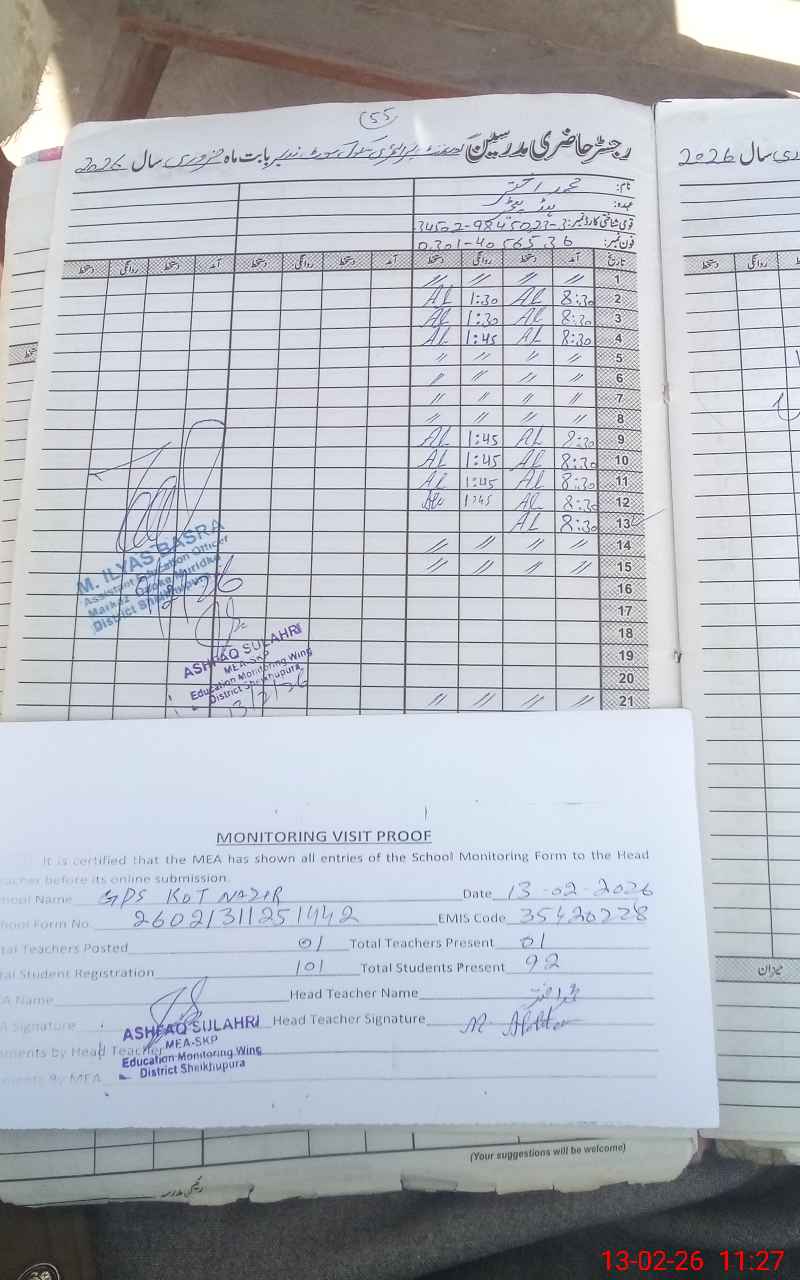 55
رجسٹر حاضری مدرسین گورنمنٹ پرائمری سکول کوٹ نذیر بابت ماہ فروری سال 2026
نام: محمد اختر
عہدہ: ہیڈ ٹیچر
قومی شناختی کارڈ نمبر: 34502-9845023-3
فون نمبر: 0301-4056536
تاریخ آمد دستخط روانگی دستخط آمد دستخط روانگی دستخط آمد دستخط روانگی دستخط
1 // // // //
2 8:30 AL 1:30 AL
3 8:30 AL 1:30 AL
4 8:30 AL 1:45 AL
5 // // // //
6 // // // //
7 // // // //
8 // // // //
9 8:30 AL 1:45 AL
10 8:30 AL 1:45 AL
11 8:30 AL 1:45 AL
12 8:30 AL 1:45
13 8:30 AL
14 // // // //
15 // // // //
16
17
18
19
20
21 // // // //
M. ILYAS BASRA
Assistant Education Officer
Markaz
District Sheikhupura
ASHFAQ SULAHRI
MEA-SKP
Education Monitoring Wing
District Sheikhupura
13/2/26
سال 2026
روانگی دستخط
میزان
MONITORING VISIT PROOF
It is certified that the MEA has shown all entries of the School Monitoring Form to the Head
acher before its online submission.
hool Name GPS KOT NAZIR Date 13-02-2026
hool Form No. 26021311251442 EMIS Code 35420228
tal Teachers Posted 01 Total Teachers Present 01
al Student Registration 101 Total Students Present 92
A Name Head Teacher Name محمد اختر
A Signature Head Teacher Signature M. Akhtar
ments by Head Teacher
ments By MEA
ASHFAQ SULAHRI
MEA-SKP
Education Monitoring Wing
District Sheikhupura
(Your suggestions will be welcome)
رئیس مدرسہ
13-02-26 11:27